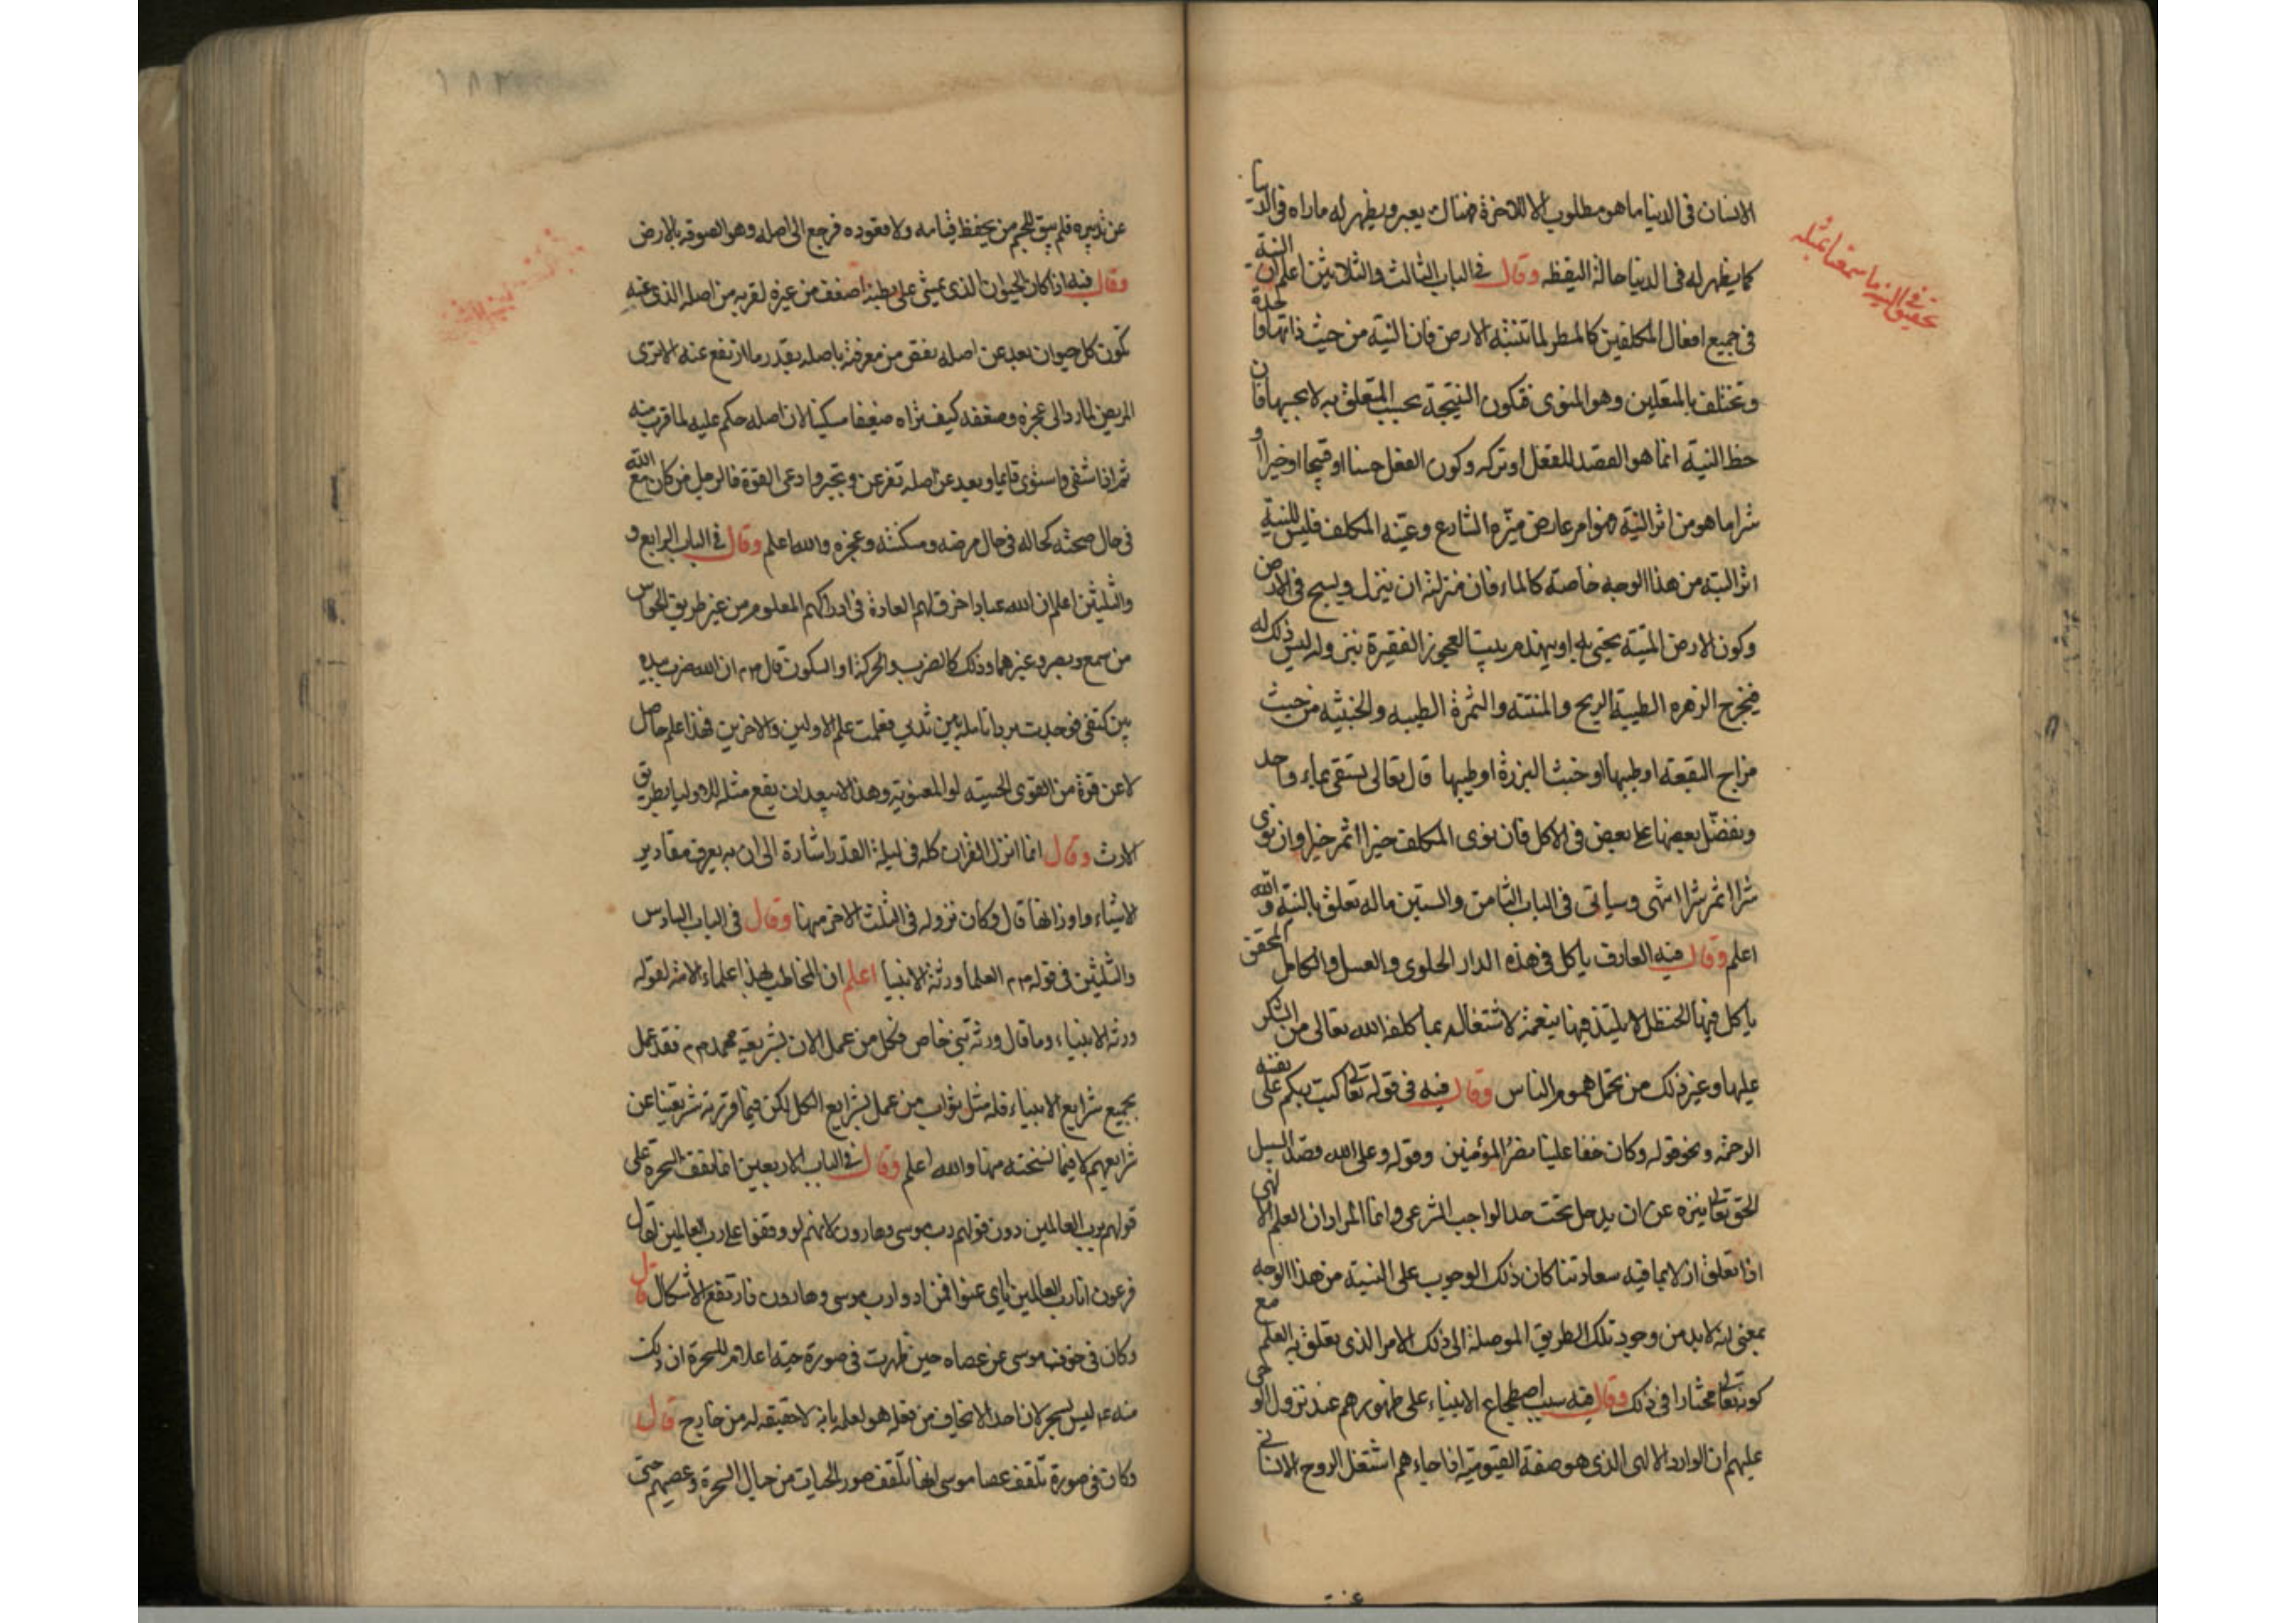 الانسان فى الدنيا ما هو مطلوب الا للاخرة هناك يعبر ويظهر له ماراه فى الدنيا
كما يظهر له فى الدنيا حالة اليقظه وقال فى الباب الثالث والثلاثين اعلم ان النية
فى جميع افعال المكلفين كالمطر لما تنبته الارض فان النية من حيث ذاتها واحدة
وتختلف بالمتعلق وهو المنوى فتكون النتيجة بحسب المتعلق به لا بحسبها فان
حظ النية انما هو القصد للفعل او تركه وكون الفعل حسنا او قبيحا او خيرا او
شرا ما هو من اثر النية هو امر عارض ميّزه الشارع وعيّنه المكلف فليس للنية
اثر البتة من هذا الوجه خاصة كالماء فان منزلته ان ينزل ويسيح فى الارض
وكون الارض الميتة يحيى به او يهدم بيت العجوز الفقيرة بنزوله ليس ذلك له
فيخرج الزهره الطيبة الريح والمنتنه والثمرة الطيبه والخبيثه من حيث
مزاج البقعة او طيبها او خبث البزرة او طيبها قال تعالى يسقى بماء واحد
ونفضّل بعضها على بعض فى الاكل فان نوى المكلف خيرا اثمر خيرا وان نوى
شرا اثمر شرا انتهى وسيأتى فى الباب الثامن والستين ماله تعلق بالنية والله
اعلم وقال فيه العارف ياكل فى هذه الدار الحلوى والعسل والكامل المحقق
ياكل فيها الحنظل لا يلتذ فيها بنعمة لاشتغاله بما كلفه الله تعالى من الشكر
عليها وغير ذلك من تحمل هموم الناس وقال فيه فى قوله تعالى كتب ربكم على نفسه
الرحمة ونحو قوله وكان حقا علينا نصر المؤمنين وقوله وعلى الله قصد السبيل
الحق تعالى ينزه عن ان يدخل تحت حد الواجب الشرعى وانما المراد ان العلم الالهى
اذا تعلق ازلا بما فيه سعادتنا كان ذلك الوجوب على النسبة من هذا الوجه
بمعنى انه لابد من وجود تلك الطريق الموصلة الى ذلك الامر الذى تعلق به العلم مع
كونه تعالى مختارا فى ذلك وقال فيه سبب اضطجاع الانبياء على ظهورهم عند نزول الوحى
عليهم ان الوارد الالهى الذى هو صفة القيومية اذا جاءهم اشتغل الروح الانسانى
تحقيق فى النية ما سمعنا بمثله
عن تدبيره فلم يبق للجسم من يحفظ قيامه ولا قعوده فرجع الى اصله وهو لصوقه بالارض
وقال فيه اذا كان الحيوان الذى يمشى على بطنه اضعف من غيره لقربه من اصله الذى عنه
تكون كل حيوان بعد عن اصله نقص من معرفة باصله بقدر ما ارتفع عنه الا ترى
المريض لما رد الى عجزه وضعفه كيف تراه ضعيفا مسكينا لان اصله حكم عليه لما قرب منه
ثم اذا شفى واستوى قايما وبعد عن اصله تفرعن وتجبر وادعى القوة فالرجل من كان مع الله
فى حال صحته كحاله فى حال مرضه ومسكنته وعجزه والله اعلم وقال فى الباب الرابع و
والثلثين اعلم ان لله عبادا خرق لهم العادة فى ادراكهم المعلوم من غير طريق الحواس
من سمع وبصر وغيرهما وذلك كالضرب والحركة او السكون قال صم ان الله ضرب بيده
بين كتفى فوجدت برد انامله بين ثديي فعلمت علم الاولين والاخرين فهذا علم حاصل
لا عن قوة من القوى الحسيه او المعنوية وهذا لا يبعد ان يقع مثله للاوليا بطريق
الارث وقال انما انزل القران كله فى ليلة القدر اشارة الى ان به يعرف مقادير
الاشياء واوزانها قال وكان نزوله فى الثلث الاخر منها وقال فى الباب السادس
والثلثين فى قوله صم العلما ورثة الانبيا اعلم ان المخاطب بهذا علماء الامة لقوله
ورثة الانبياء وما قال ورثة نبى خاص فكل من عمل الان بشريعة محمد صم فقد عمل
بجميع شرايع الانبياء فله مثل ثواب من عمل بشرايع الكل لكن فيما قررته شريعتنا عن
شرايعهم لا فيما نسخته منها والله اعلم وقال فى الباب الاربعين انما يقف السحرة على
قولهم برب العالمين دون قولهم رب موسى وهارون لانهم لو وقفوا على رب العالمين لقال
فرعون انا رب العالمين اياى عنوا فزادوا رب موسى وهارون فارتفع الاشكال قال
وكان فى خوف موسى من عصاه حين ظهرت فى صورة حية اعلام للسحرة ان ذلك
منه ليس بسحر لان احدا لا يخاف من فعله هو لعلمه بانه لا حقيقه له من خارج قال
وكان فى صورة تلقف عصا موسى انها تلقف صور الحيات من حبال السحرة وعصيهم حتى